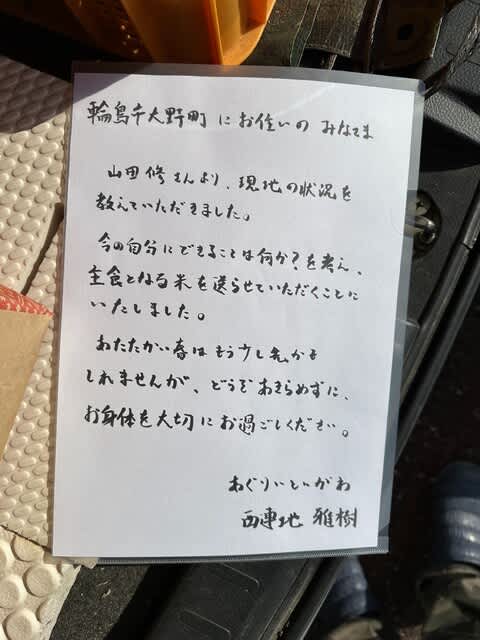 輪島市大野町 にお住いの みなさま
山田 修さんより、現地の状況を
教えていただきました。
今の自分にできることは何か?を考え、
主食となる米を送らせていただくことに
いたしました。
あたたかい春はもう少し先かも
しれませんが、どうぞあきらめずに、
お身体を大切にお過ごしください。
あぐりいといがわ
西連地 雅樹